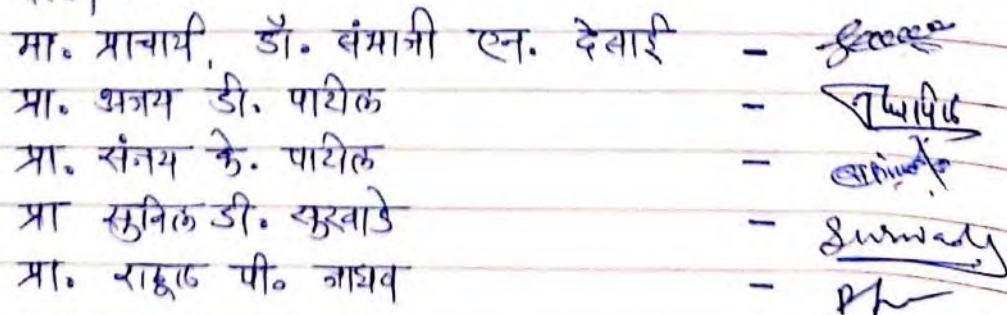 मा. प्राचार्य, डॉ. संभाजी एन. देसाई -
प्रा. अजय डी. पाटील -
प्रा. संजय के. पाटील -
प्रा सुनिल डी. सुरवाडे - Surwade
प्रा. राहूल पी. जाधव -